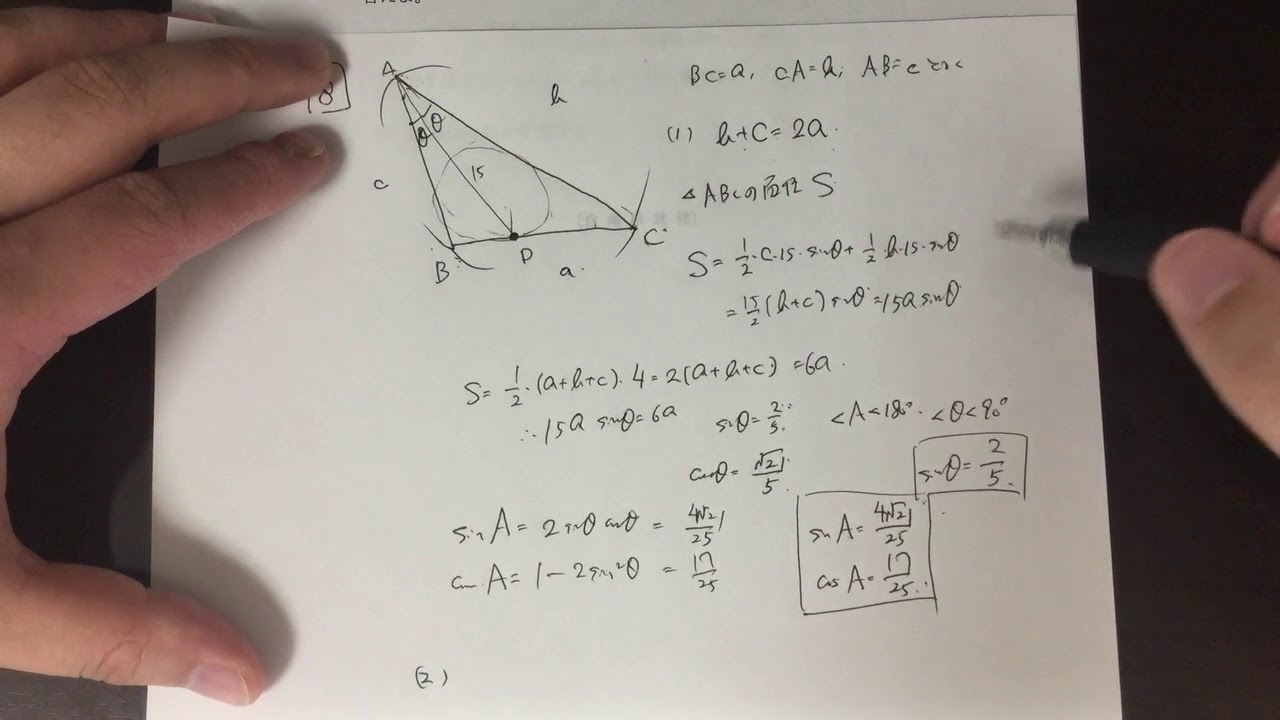 [8]
A
θ
θ
15
b
c
B
D
a
C
BC=a, CA=b, AB=c とおく
(1) b+c=2a.
△ABCの面積 S
S=1/2・c・15・sinθ+1/2・b・15・sinθ
=15/2(b+c)sinθ=15a sinθ
S=1/2・(a+b+c)・4=2(a+b+c)=6a.
∴15a sinθ=6a sinθ=2/5. <A<180°. <θ<90°
cosθ=√21/5. sinθ=2/5.
sin A=2sinθcosθ=4√21/25 sin A=4√21/25
cos A=1-2sin²θ=17/25 cos A=17/25.
(2)